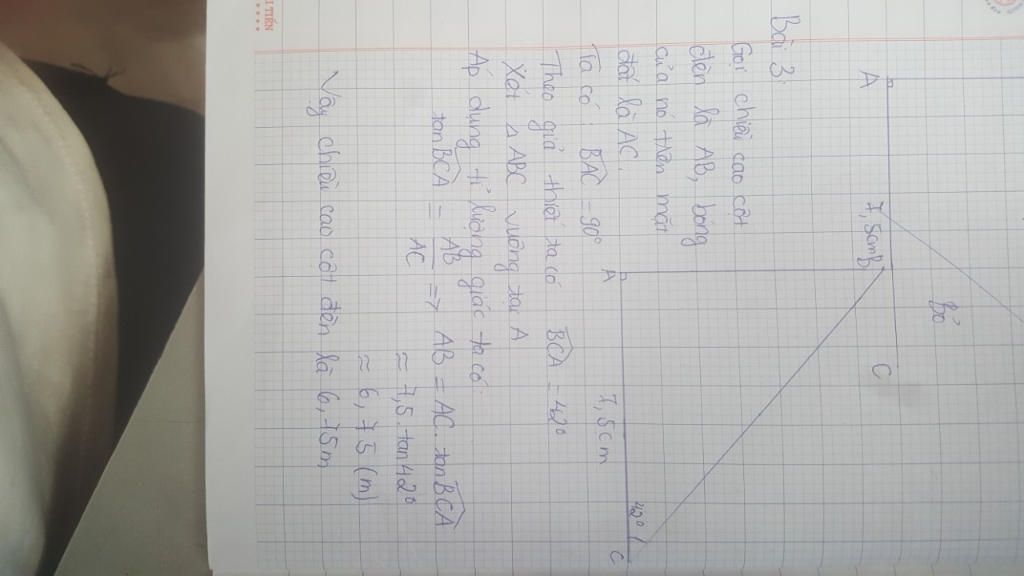 I TIẾN
Bài 3:
Gọi chiều cao cột
đèn là AB, bóng
của nó trên mặt
đất là AC.
Ta có: BAC = 90°
Theo giả thiết ta có BCA = 42°
Xét Δ ABC vuông tại A
Áp dụng tỉ lượng giác ta có:
tanBCA = AB/AC => AB = AC. tanBCA
≈ 7,5. tan42°
≈ 6,75 (m)
Vậy chiều cao cột đèn là 6,75m
A
7,5cm
B
C
bỏ
A
7,5cm
42°
C